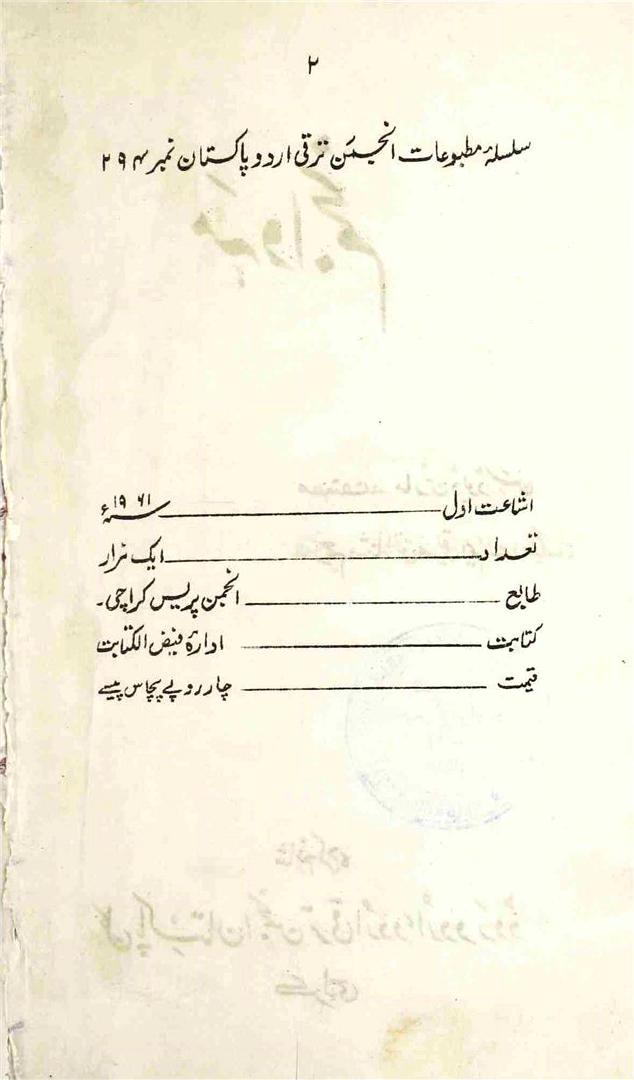 ۲
سلسلۂ مطبوعات انجمن ترقی اردو پاکستان نمبر ۲۹۴
اشاعت اول ——— ۱۹۶۱ء
تعداد ——— ایک ہزار
طابع ——— انجمن پریس کراچی۔
کتابت ——— ادارۂ فیض الکتابت
قیمت ——— چار روپے پچاس پیسے